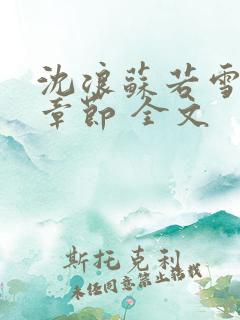 沈浪蘇若雪
章節 全文
斯托克利
未经同意禁止搭载